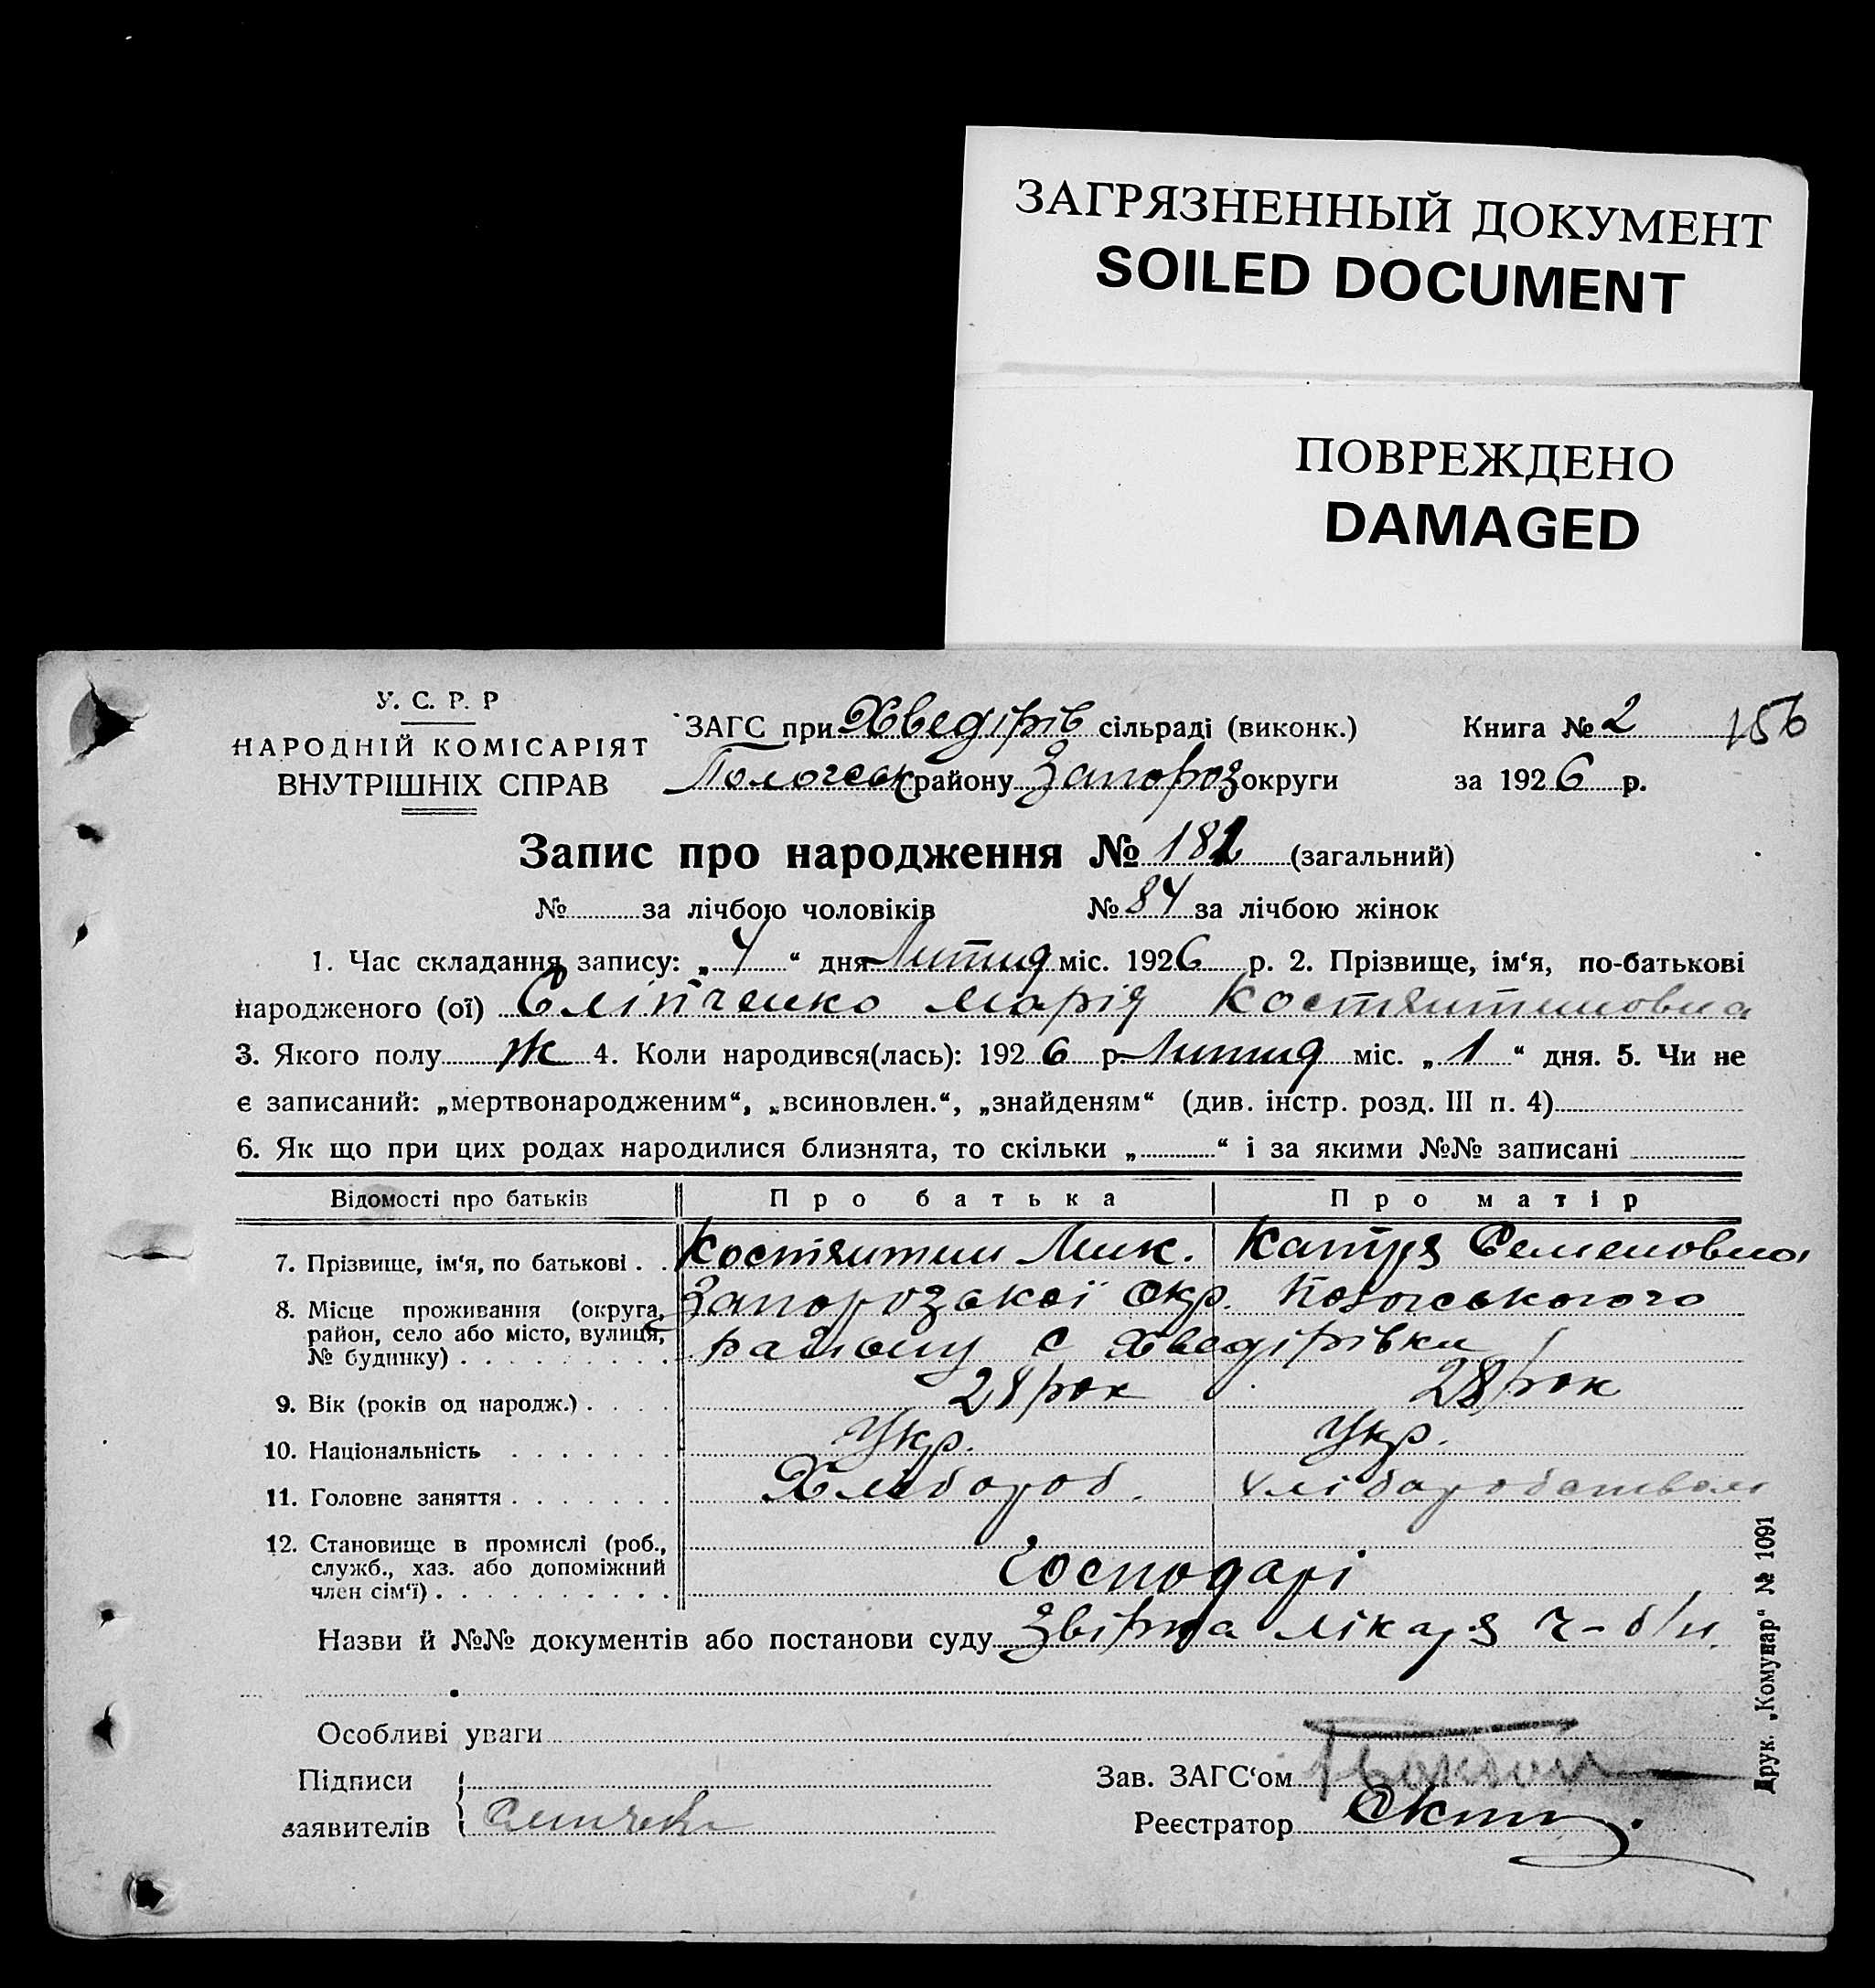 ЗАГРЯЗНЕННЫЙ ДОКУМЕНТ
SOILED DOCUMENT
ПОВРЕЖДЕНО
DAMAGED
У. С. Р. Р
НАРОДНІЙ КОМІСАРІЯТ
ВНУТРІШНІХ СПРАВ
ЗАГС при Хведірів сільраді (виконк.)
Пологськ району Запороз округи
Книга № 2 156
за 1926 р.
Запис про народження № 182 (загальний)
№ за лічбою чоловіків № 84 за лічбою жінок
1. Час складання запису: „4“ дня Лютид міс. 1926 р. 2. Прізвище, ім‘я, по-батькові
народженого (ої) Сліпченко Марія Костянтиновна
3. Якого полу ж 4. Коли народився(лась): 1926 р. Лютид міс. „1“ дня. 5. Чи не
є записаний: „мертвонародженим“, „всиновлен.“, „знайденям“ (див. інстр. розд. III п. 4)
6. Як що при цих родах народилися близнята, то скільки „ “ і за якими №№ записані
Відомості про батьків Про батька Про матір
7. Прізвище, ім‘я, по батькові . . Костянтин Мик. Катря Семеновна
8. Місце проживання (округа, Запорозської Окр. Пологського
район, село або місто, вулиця, району С Хведірівки
№ будинку)
9. Вік (років од народж.) . . . . 28 рок 28 рок
10. Національність Укр. Укр.
11. Головне заняття Хлібороб. хліборобством
12. Становище в промислі (роб.,
служб., хаз. або допоміжний
член сім‘ї) Господарі
Назви й №№ документів або постанови суду Звірка лікаря ч - б/н.
Особливі уваги
Підписи
заявителів
Зав. ЗАГС‘ом
Реєстратор
Друк. „Комунар“ № 1091